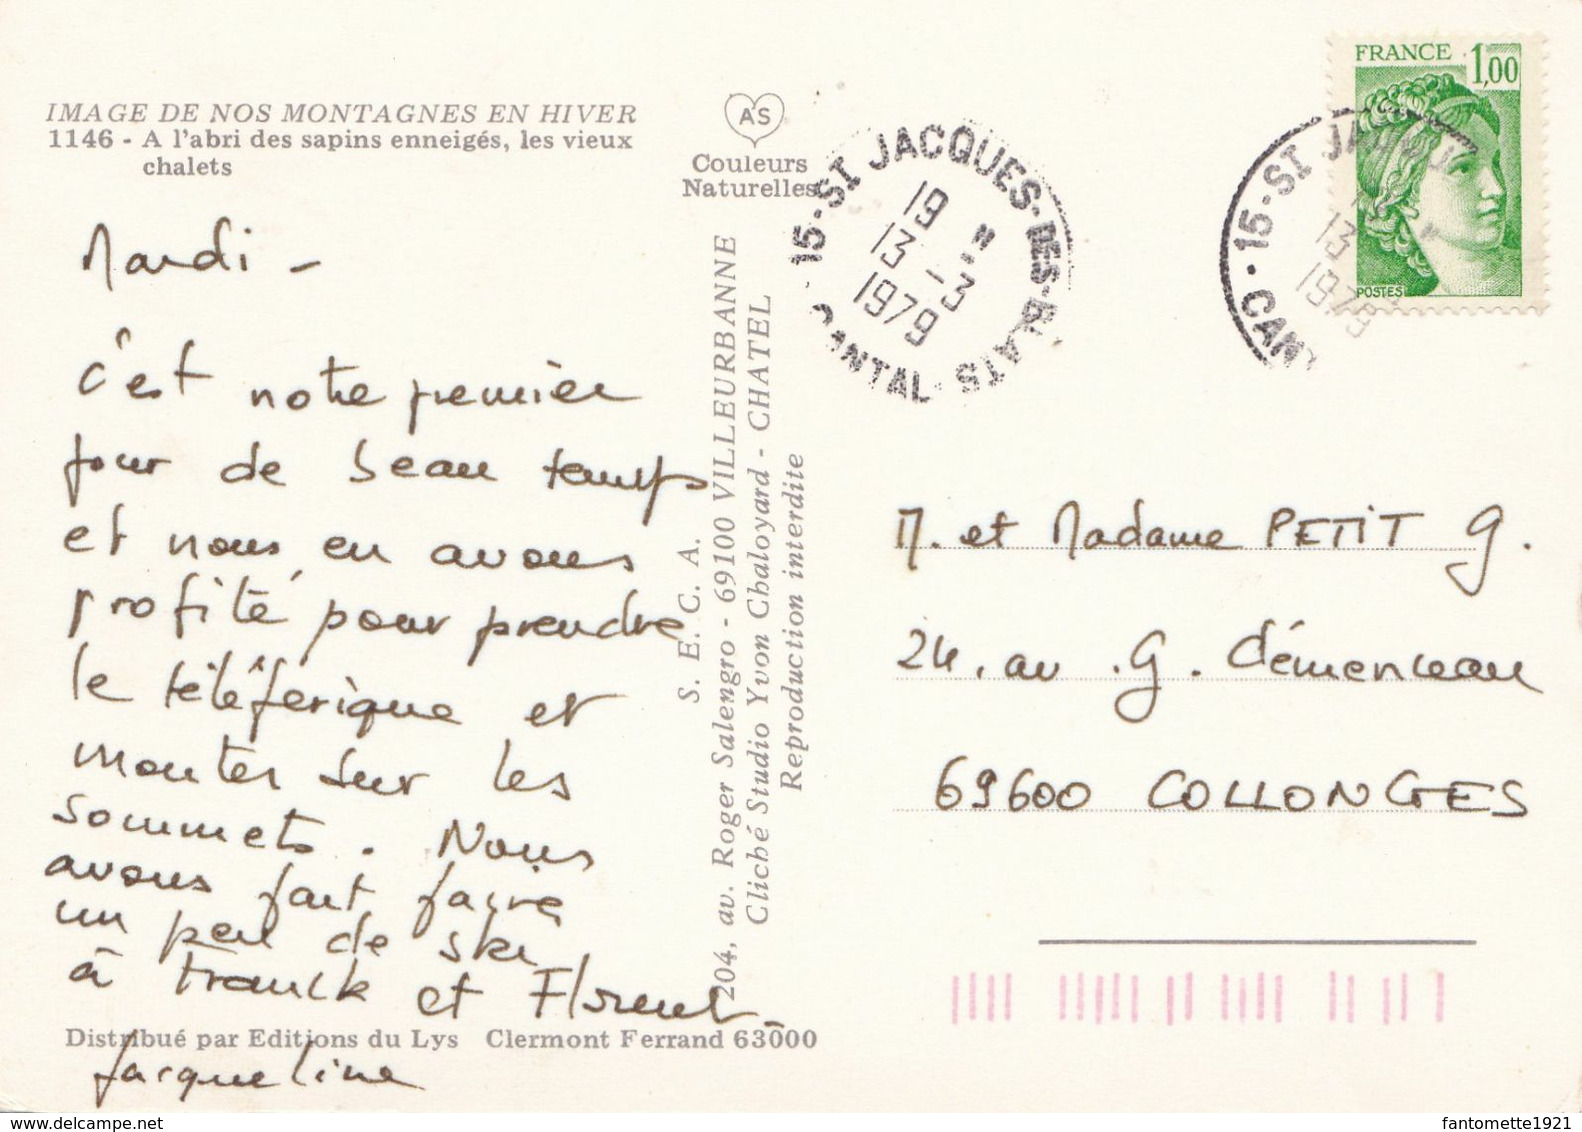 IMAGE DE NOS MONTAGNES EN HIVER
1146 - A l'abri des sapins enneigés, les vieux
chalets
AS
Couleurs
Naturelles
Mardi -
c'est notre premier
jour de beau temps
et nous en avons
profité pour prendre
le téléférique et
monter sur les
sommets. Nous
avons fait faire
un peu de ski
à Franck et Florent -
Jacqueline
Distribué par Editions du Lys Clermont Ferrand 63000
S. E. C. A.
204, av. Roger Salengro - 69100 VILLEURBANNE
Cliché Studio Yvon Chaloyard - CHATEL
Reproduction interdite
15 - ST JACQUES-DES-BLATS
CANTAL
19 H
13 - 3
1979
FRANCE 1,00
POSTES
15 - ST JACQU
CANT
13
1979
M. et Madame PETIT G.
24, av. G. Clémenceau
69600 COLLONGES
fantomette1921